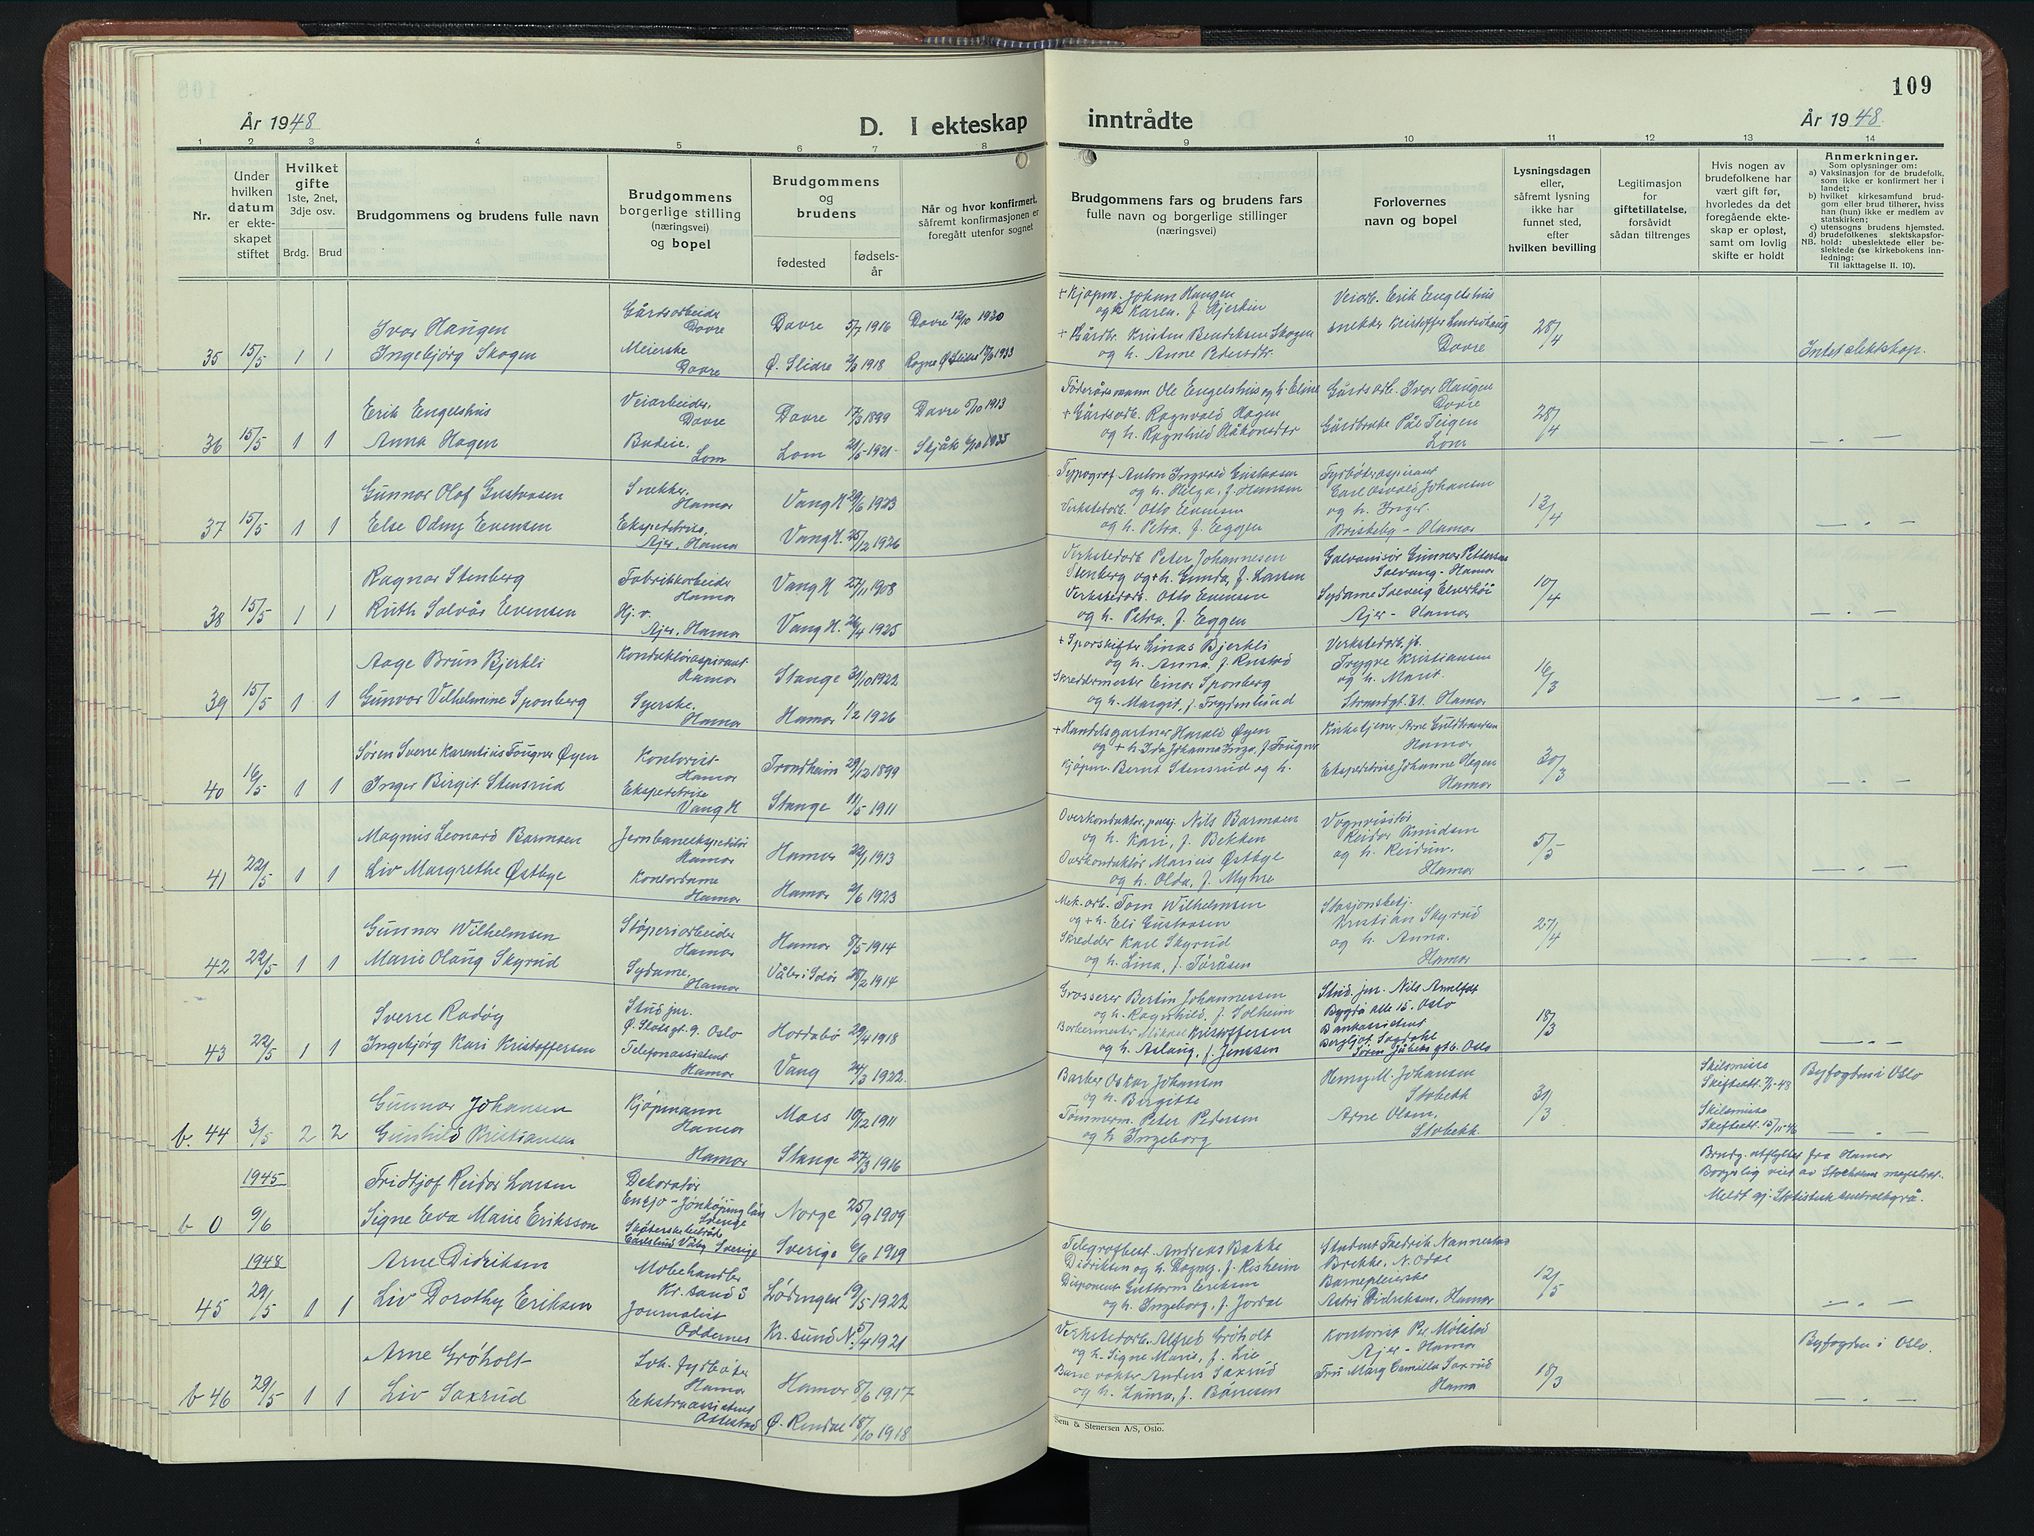 109
År 1948
D. I ekteskap inntrådte
År 1948.
1 2 3 4 5 6 7 8 9 10 11 12 13 14
Nr.
Under hvilken datum er ekteskapet stiftet
Hvilket gifte
1ste, 2net, 3dje osv.
Brdg. Brud
Brudgommens og brudens fulle navn
Brudgommens borgerlige stilling (næringsvei) og bopel
Brudgommens og brudens
fødested
fødselsår
Når og hvor konfirmert, såfremt konfirmasjonen er foregått utenfor sognet
Brudgommens fars og brudens fars fulle navn og borgerlige stillinger (næringsvei)
Forlovernes navn og bopel
Lysningsdagen eller, såfremt lysning ikke har funnet sted, efter hvilken bevilling
Legitimasjon for giftetillatelse, forsåvidt sådan tiltrenges
Hvis nogen av brudefolkene har vært gift før, hvorledes da det foregående ekteskap er opløst, samt om lovlig skifte er holdt
Anmerkninger.
Som oplysninger om:
a) Vaksinasjon for de brudefolk, som ikke er konfirmert her i landet;
b) hvilket kirkesamfund brudgom eller brud tilhører, hviss han (hun) ikke er medlem av statskirken;
c) utensogns brudens hjemsted.
d) brudefolkenes slektskapsforhold: ubeslektede eller beslektede (se kirkebokens innledning:
NB. Til iakttagelse II. 10).
35 15/5 1 1
Ivar Haugen Gårdsarbeider Dovre Dovre 5/7 1916 Dovre 12/10 1930
Ingebjørg Skogen Meierske Dovre Ø. Slidre 1918
+ Kjøpm. Johan Haugen
og Karen, f. Hjerkin
+ Gårdbr. Kristen Bendiksen Skogen
og h. Anne Pedersdtr.
Veiarb. Erik Engelshus
snekker Kristoffer
Dovre
28/4
Intet slektskap.
36 15/5 1 1
Erik Engelshus Veiarbeider, Dovre Dovre 17/3 1899 Dovre 5/10 1913
Anna Hagen Budeie, Lom Lom 1921 Skjåk 1935
Føderådsmann Ole Engelshus og h. Eline
+ Gårdsarb. Ragnvald Hagen
og h. Ragnhild Håkonsdtr
Gårdsarb. Ivar Haugen
Dovre
Gårdbruker Pål Teigen
Lom
28/4
— „ —
37 15/5 1 1
Gunnar Olaf Gustavsen Snekker, Hamar Vang H 29/6 1923
Else Odny Evensen Ekspeditrise, Ajer, Hamar Vang H. 25/12 1926
Typograf Anton Ingvald Gustavsen
og h. Helga, f. Hansen
Verkstedarb. Otto Evensen
og h. Petra, f. Eggen
Fyrbøteraspirant
Carl Osvald Johansen
og h. Inger.
Briskeby - Hamar
13/4
— „ —
38 15/5 1 1
Ragnar Stenberg Fabrikkarbeider Hamar Vang H 27/11 1908
Ruth Solvår Evensen Hj. v. Ajer, Hamar Vang H. 26/4 1925
Verkstedarb Peter Johannesen
Stenberg og + h. Gunda, f. Larsen
Verkstedarb. Otto Evensen
og h. Petra, f. Eggen
Galvanisør Gunnar Pettersen
Solvang - Hamar
Sydame Solveig Elverhøi
Ajer - Hamar
10/4
— „ —
39 15/5 1 1
Aage Brun Bjerkli Konduktøraspirant Hamar Stange 1922
Gunvor Vilhelmine Sponberg Syerske. Hamar Hamar 1/2 1926
+ Sporskifter Linas Bjerkli
og h. Anna, f. Rustad
Skreddermester Einar Sponberg
og h. Margit, f. Frydenlund
Verkstedarb. jb.
Trygve Kristiansen
og h. Marit.
Strandgt. 21. Hamar
16/3
— „ —
40 16/5 1 1
Søren Sverre Karentius Fougner Øyen Kontorist Hamar Trondheim 29/12 1899
Inger Birgit Stensrud Ekspeditrise Vang H Stange 11/5 1911
+ Handelsgartner Harald Øyen
og + h. Ida Johanna Inga, f. Fougner
Kjøpm. Bernt Stensrud og h.
Kirketjener Arne Guldbrandsen
Hamar
Ekspeditrise Johanne Hagen
Hamar
30/3
— „ —
41 22/5 1 1
Magnus Leonard Barmoen Jernbaneekspeditør Hamar Hamar 22/1 1913
Liv Margrethe Østbye Kontordame Hamar Hamar 2/6 1923
Overkonduktør, pensj. Nils Barmoen
og h. Kari, f. Bekken
Overkonduktør Marius Østbye
og h. Olda, f. Myhre
Vognvisitør
Reidar Knudsen
og h. Reidun.
Hamar
5/5
— „ —
42 22/5 1 1
Gunnar Wilhelmsen Støperiarbeider Hamar Hamar 8/5 1914
Marie Olaug Skyrud Sydame, Hamar Våler i Solør 28/2 1914
Mek. arb. Tom Wilhelmsen
og + h. Eli Gustavsen
Skredder Karl Skyrud
og h. Lina, f. Toråsen
Stasjonsbetj.
Kristian Skyrud
og h. Anna.
Hamar
27/4
43 22/5 1 1
Sverre Radøy Stud. jur. Ø. Slotsgt. 9. Oslo Hordabø 29/4 1918
Ingebjørg Kari Kristoffersen Telefonassistent Hamar Vang 24/3 1922.
Grosserer Bertin Johannessen
og h. Ragnhild, f. Solheim
Barbermester Mikael Kristoffersen
og h. Aslaug, f. Jenssen
Stud. jur. Nils Arnelfot
Bygdø alle 15. Oslo
Bankassistent
Bergljot
Søren Jåbæks gt 6. Oslo
18/3
— „ —
b. 44 3/5 2 2
Gunnar Johansen Kjøpmann Hamar Moss 10/12 1911
Gunhild Kristiansen Hamar Stange 27/3 1916
Barber Oskar Johansen
og h. Birgitte
Tømmerm. Peter Pedersen
og h. Ingeborg
Henry M. Johansen
Stabekk
Arne Olsen,
Stabekk.
31/3
Skilsmisse
Skifteatt. 7/1-48
Skilsmisse
Skifteatt. 13/11-46
Byfogden i Oslo
— „ —
b 0 1945 9/6
Fridtjof Reidar Larsen Dekoratør Jönköping län Sverige Norge 25/9 1909
Signe Eva Marie Eriksson Carlslund Väby Sverige Sverige 6/6 1919
Brudg. utflyttet fra Hamar
Borgerlig viet av Stockholm magistrat.
Meldt gj. Statistisk sentralbyrå.
45 1948 29/5 1 1
Arne Didriksen Møbelhandler Kr.sand S Lødingen 19/5 1922
Liv Dorothy Eriksen Journalist Oddernes Kr. sund N. 5/4 1921
Telegrafbest. Andreas Bakke
Didriksen og h. Dagny, f. Risheim
Disponent Guttorm Eriksen
og h. Ingeborg, f. Jordal
Student Fredrik Nannestad
Brekke, N. Odal
Barnepleierske
Astri Didriksen, Hamar
12/5
— „ —
b 46 29/5 1 1
Arne Grøholt Lok. fyrbøter Hamar Hamar 8/6 1917
Liv Saxrud Ekstraassistent Ottestad Ø. Rendal 18/10 1918
Verkstedarb. Alfred Grøholt
og h. Signe Marie, f. Lie
Banevokter Anders Saxrud
og h. Laura, f. Bonesen
Kontorist Per Mølstad
Ajer - Hamar
Fru Marg Camilla Saxrud
Hamar
18/3
Byfogden i Oslo.
— „ —
Sem & Stenersen A/S, Oslo.